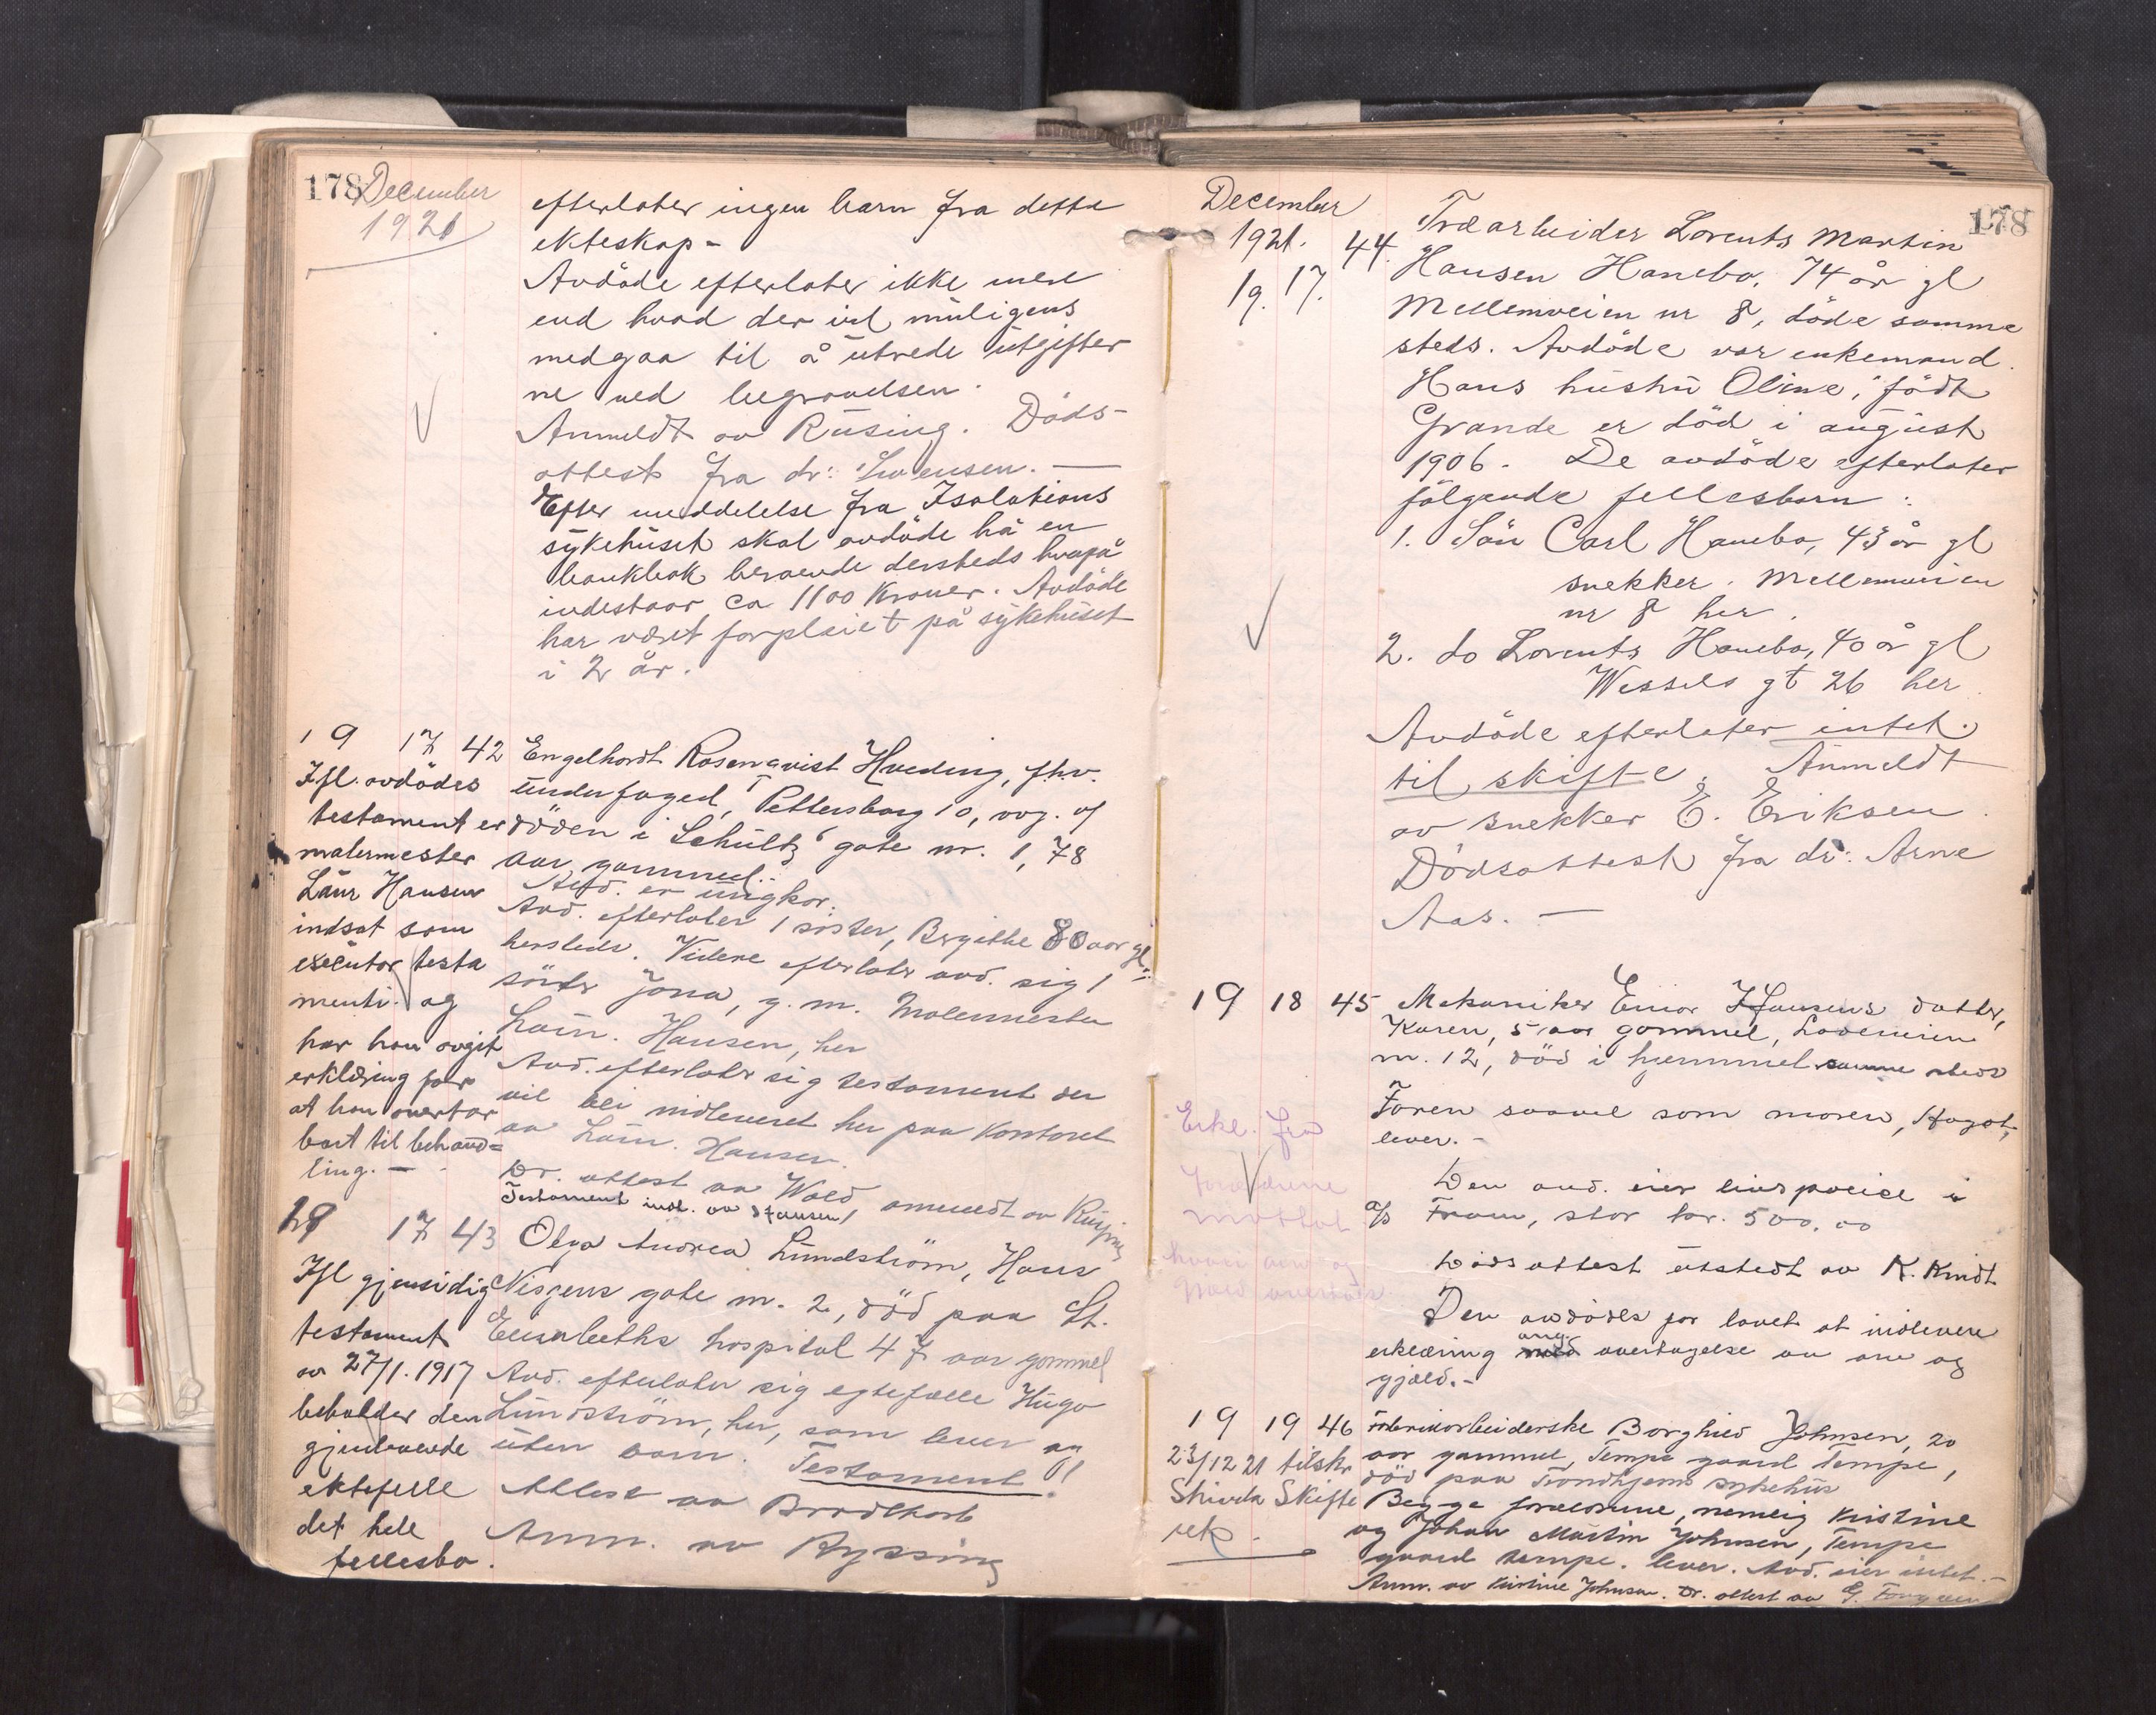 178 December
1921
efterlater ingen barn fra dette
ekteskap -
Avdöde efterlater ikke mere
end hvad der vil muligens
medgaa til å utrede utgifter
ne ved begravelsen.
Anmeldt av Rusing. Döds-
attest fra dr: Svensen. —
Efter meddelelse fra Isolations
sykehuset skal avdöde ha en
bankbok beroende dersteds hvorpå
indestaar ca 1100 Kroner. Avdöde
har været forpleiet på sykehuset
i 2 år.
19 17 42 Engelhardt Rosenqvist Hveding, fhv.
underfoged, Pettersborg 10, avg. ef
döden i Schultz gate nr. 1, 78
aar gammel.
Avd. er ungkar.
Avd. efterlater 1 söster, Bergithe 80 aar gl.
hersteds. Videre efterlater avd. sig 1
söster Jona, g. m. Malermester
Laur. Hansen, her
Avd. efterlater sig testament der
vil bli indleveret her paa kontoret
av Laur. Hansen.
Dr. attest av Wold anmeldt av Rusing
Testament indl. av Hansen!
Ifl. avdödes
testament er
malermester
Laur Hansen
indsat som
executor testa
menti og
har han avgit
erklæring for
at han overtar
boet til behand=
ling. —
19 17 43 Olga Andrea Lundström, Hans
Nissens gate nr. 2, död paa St.
Elisabeths hospital 47 aar gammel
Avd. efterlater sig egtefælle Hugo
Lundström, her, som lever og
uten barn. Testament!!
Attest av Brodtkorb
Anm. av Ryssing
Ifl gjensidig
testament
av 27/1. 1917
beholder den
gjenlevende
ektefelle
det hele
fellesbo.
December
1921.
178
19. 17. 44. Træarbeider Lorents Martin
Hansen Hanebo, 74 år gl
Mellemveien nr 8, döde samme
steds. Avdöde var enkemand.
Hans hustru Oline, födt
Grande er död i august
1906. De avdöde efterlater
fölgende fellesbarn:
1. Sön Carl Hanebo, 43 år gl
snekker. Mellemveien
nr 8 her.
2. do Lorents Hanebo, 40 år gl
Wessels gt 26 her.
Avdöde efterlater intet
til skifte. Anmeldt
av snekker E. Eriksen.
Dödsattest fra dr: Arne
Aas. —
19 18 45 Mekaniker Einar Hansens datter,
Karen, 5 aar gammel, Ladeveien
nr. 12, död i hjemmet samme steds
Faren saavel som moren, Aagot,
lever. -
Den avd. eier livspolice i
a/s Fram, stor kr. 500,00
Dödsattest utstedt av K. Kindt
Den avdödes far lovet at indlevere
erklæring ang. overtagelse av arv og
gjæld. -
Erkl. fra
forældrene
mottat
hvori arv og
gjæld overtas.
19 19 46 Fabrikarbeiderske Borghild Johnsen, 20
aar gammel, Tempe gaard Tempe,
död paa Trondhjems sykehus
Begge forældrene, nemlig Kristine
og Johan Martin Johnsen, Tempe
gaard Tempe. lever. Avd. eier intet. -
Anm. av Kristine Johnsen. Dr. attest av G.
23/12 21 tilskr
Strinda Skifte
ret.